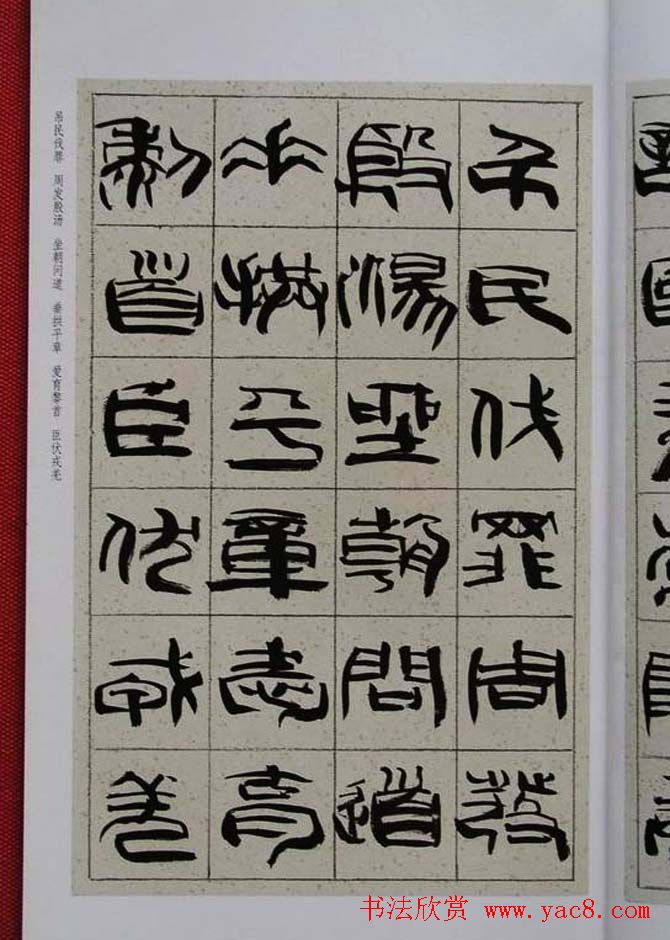 吊民伐罪周發
殷湯坐朝問道
垂拱平章愛育
黎首臣伏戎羌
吊民伐罪 周发殷汤 坐朝问道 垂拱平章 爱育黎首 臣伏戎羌
书法欣赏 www.yac8.com